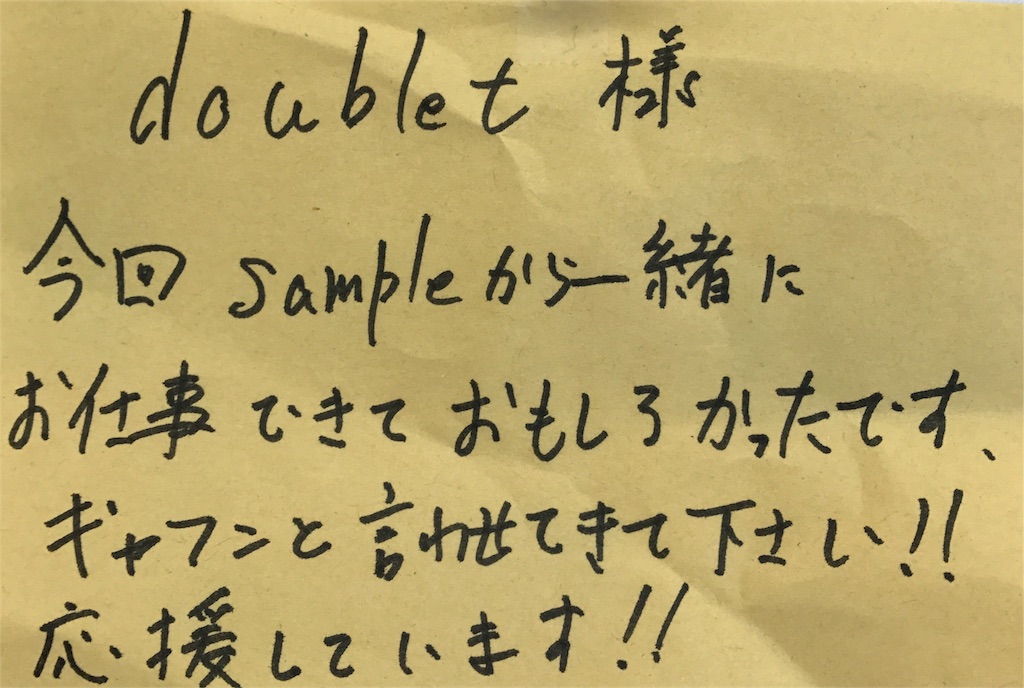 doublet 様
今回 sampleから一緒に
お仕事できておもしろかったです、
ギャフンと言わせてきて下さい!!
応援しています!!